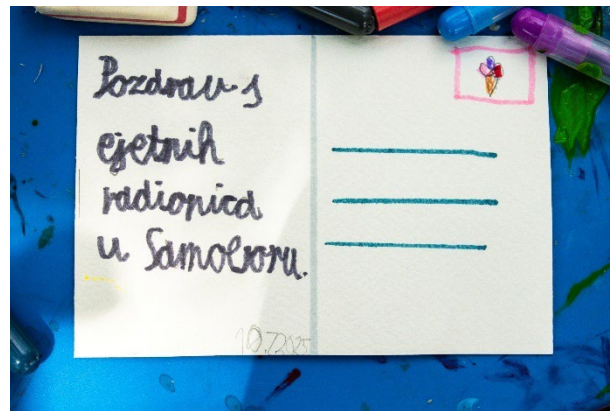 Pozdrav s
ejetnih
radionica
u Samoboru.
10.7.2025